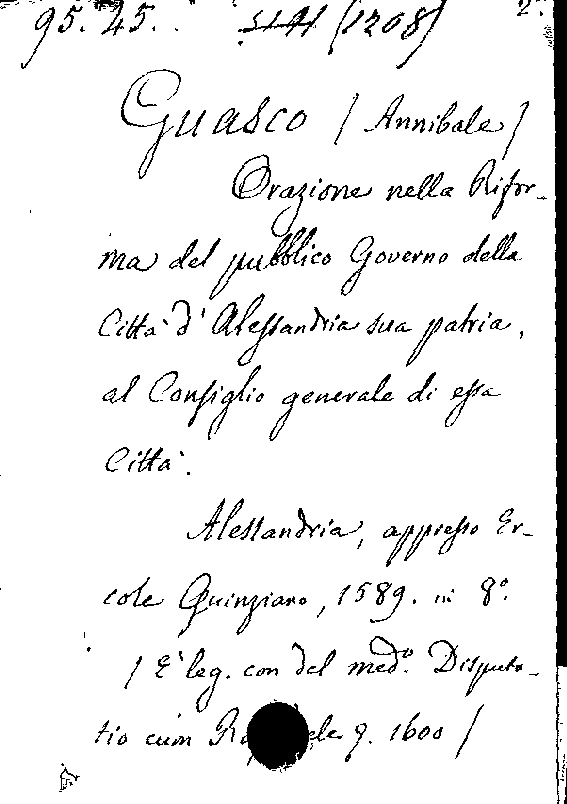 95. 45. . S141 (1208) 2.
Guasco / Annibale /
Orazione nella Rifor-
ma del pubblico Governo della
Città d'Alessandria sua patria,
al Consiglio generale di essa
Città.
Alessandria, appresso Er-
cole Quinziano, 1589. in 8.°
/ E' leg. con del med.° Disputa-
tio cum 1600 /